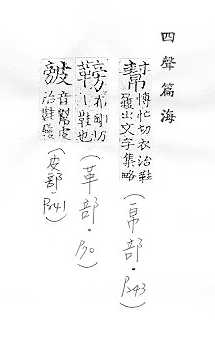 四聲篇海
博忙切衣治鞋
履出文字集略
(帛部.P.243)
布剛切
小鞋也
(革部.P.70)
音幫皮
治鞋履
(皮部.P.241)